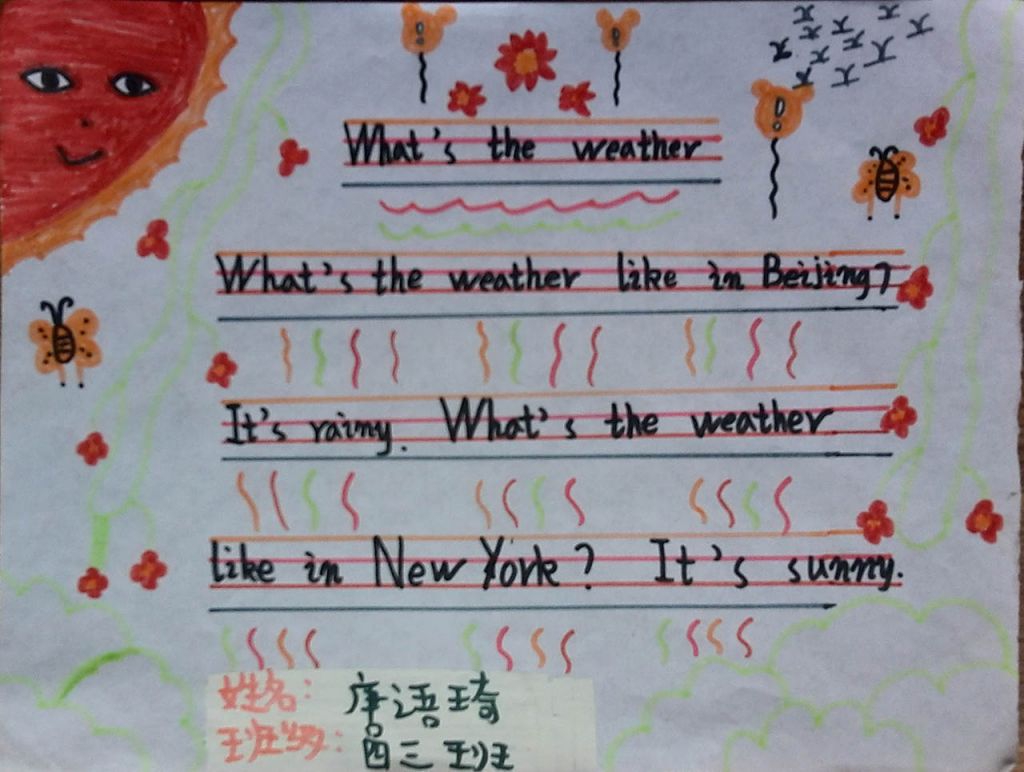 What's the weather
What's the weather like in Beijing?
It's rainy. What's the weather
like in New York? It's sunny.
姓名: 唐语琦
班级: 四三班